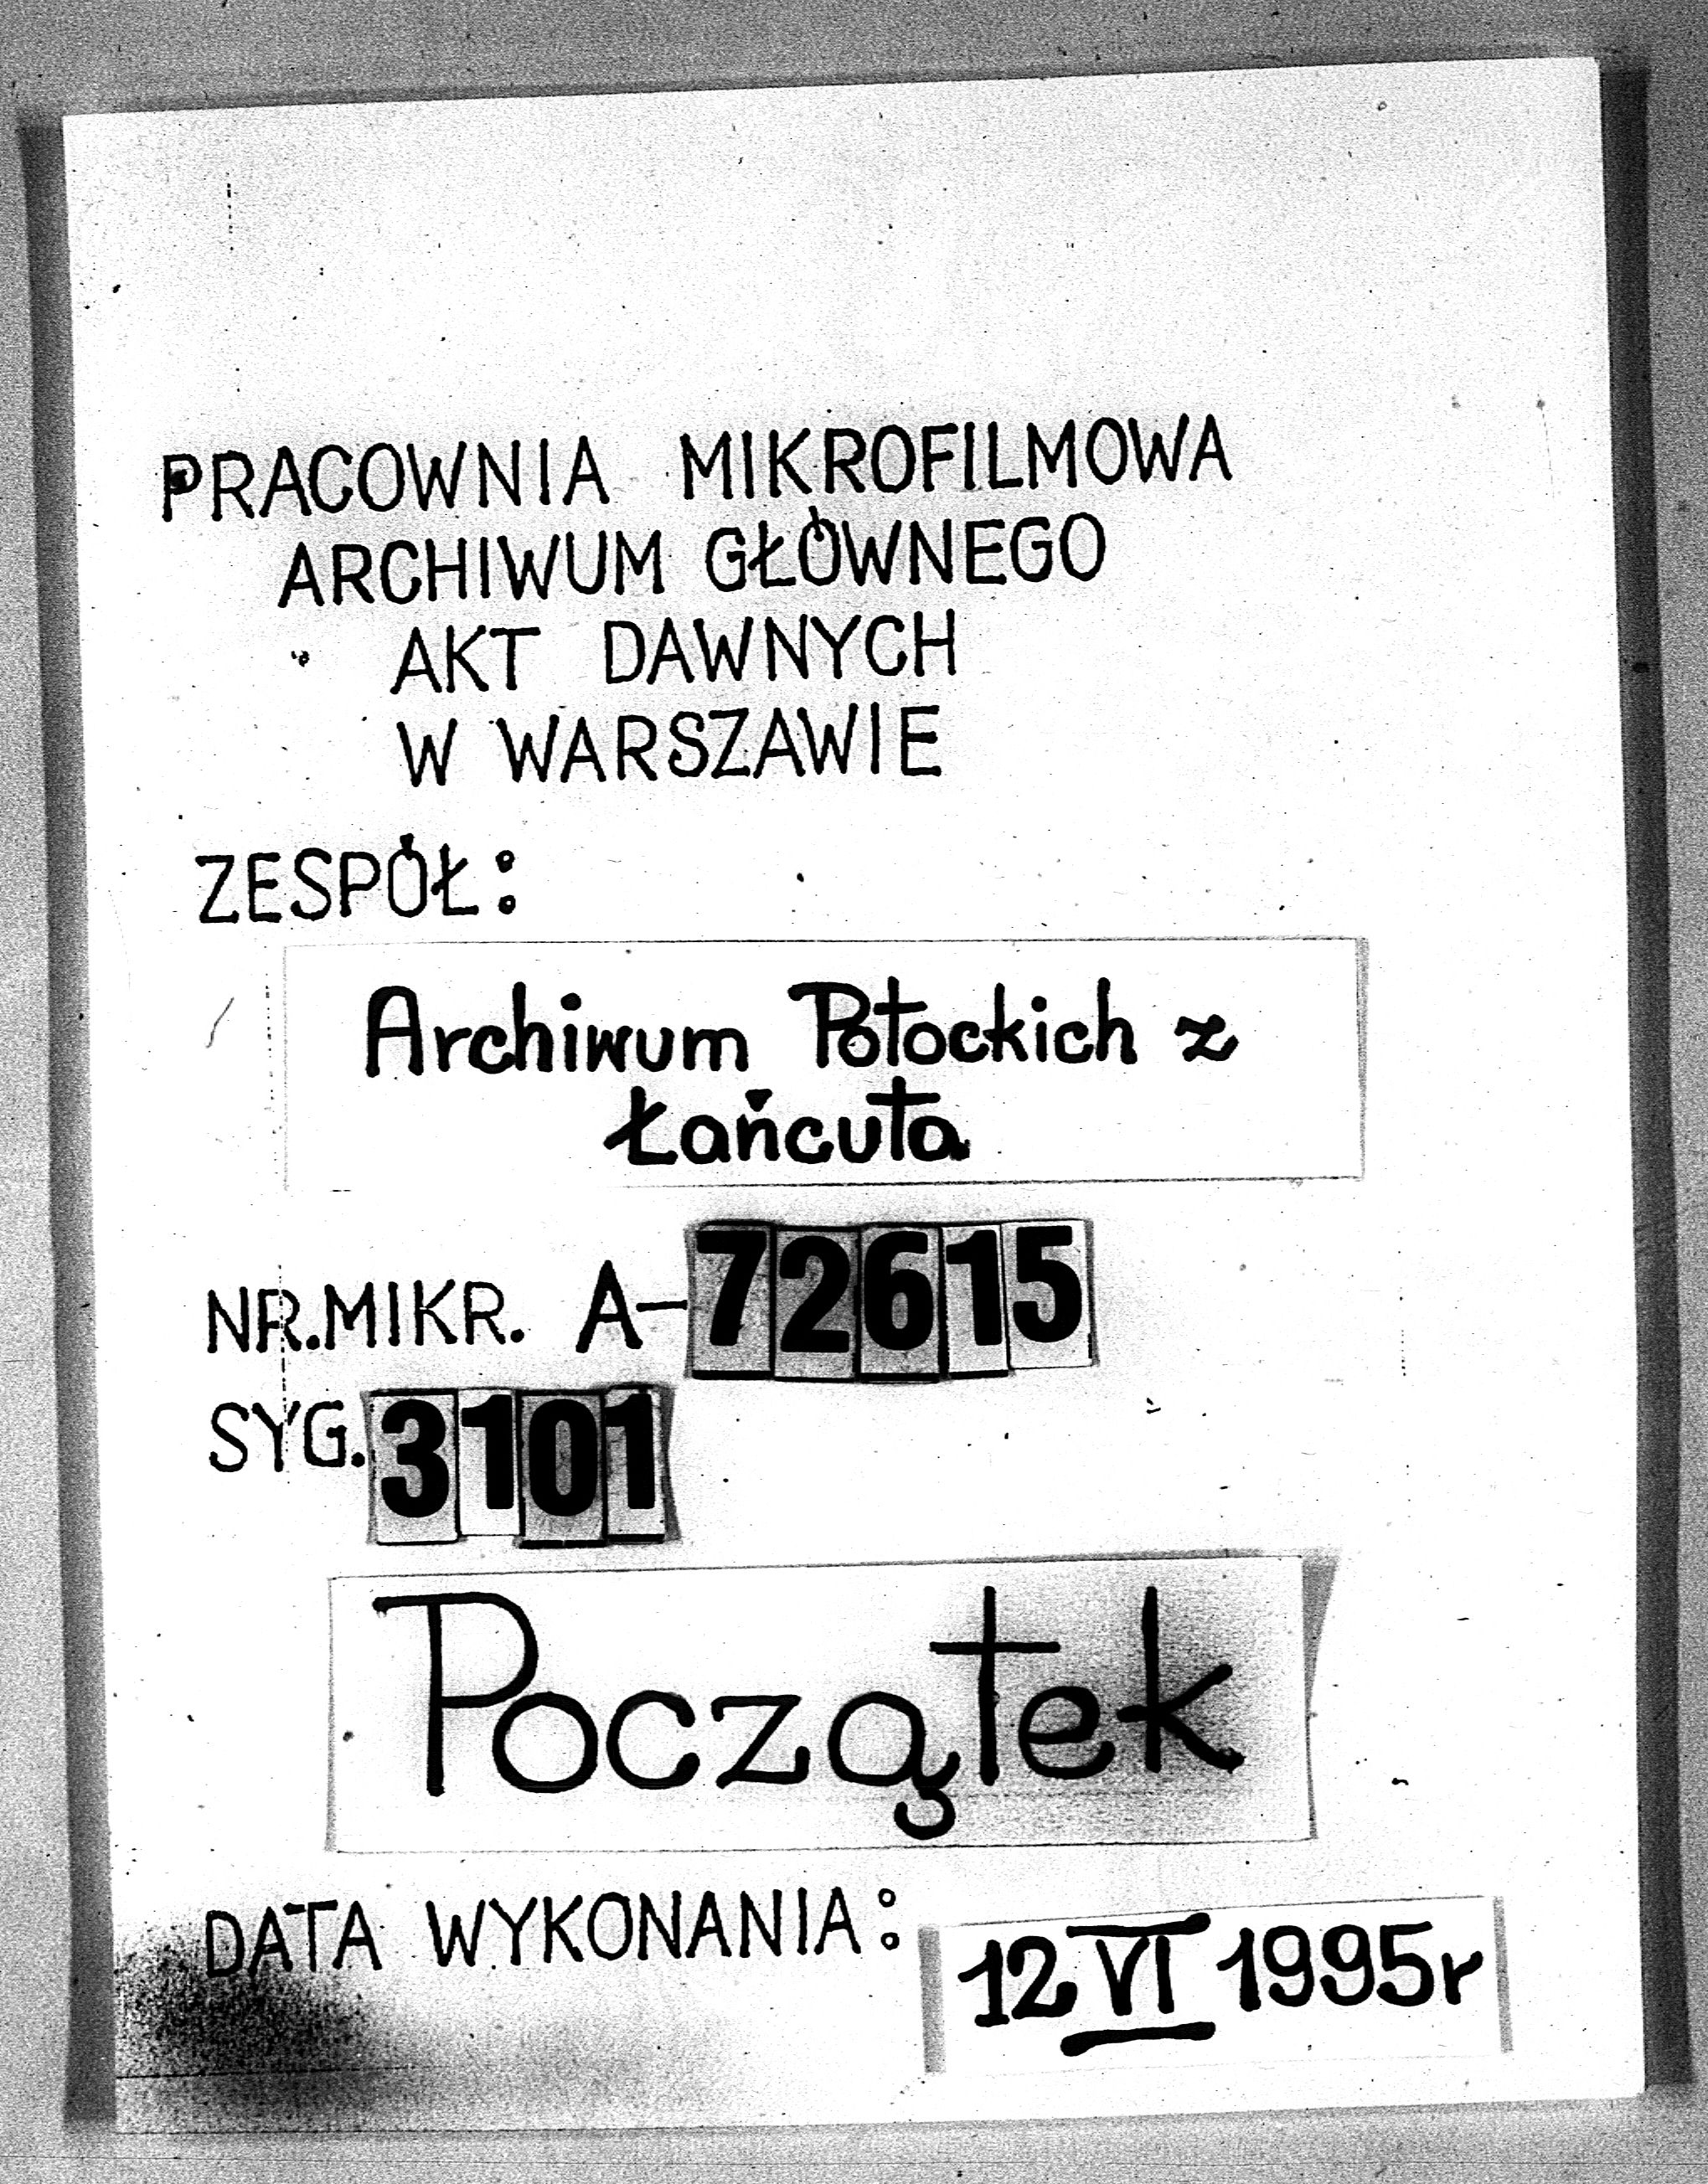 PRACOWNIA MIKROFILMOWA
ARCHIWUM GŁÓWNEGO
AKT DAWNYCH
W WARSZAWIE
ZESPÓŁ:
Archiwum Potockich z
Łańcuta
NR.MIKR. A-72615
SYG. 3101
Początek
DATA WYKONANIA: 12 VI 1995r